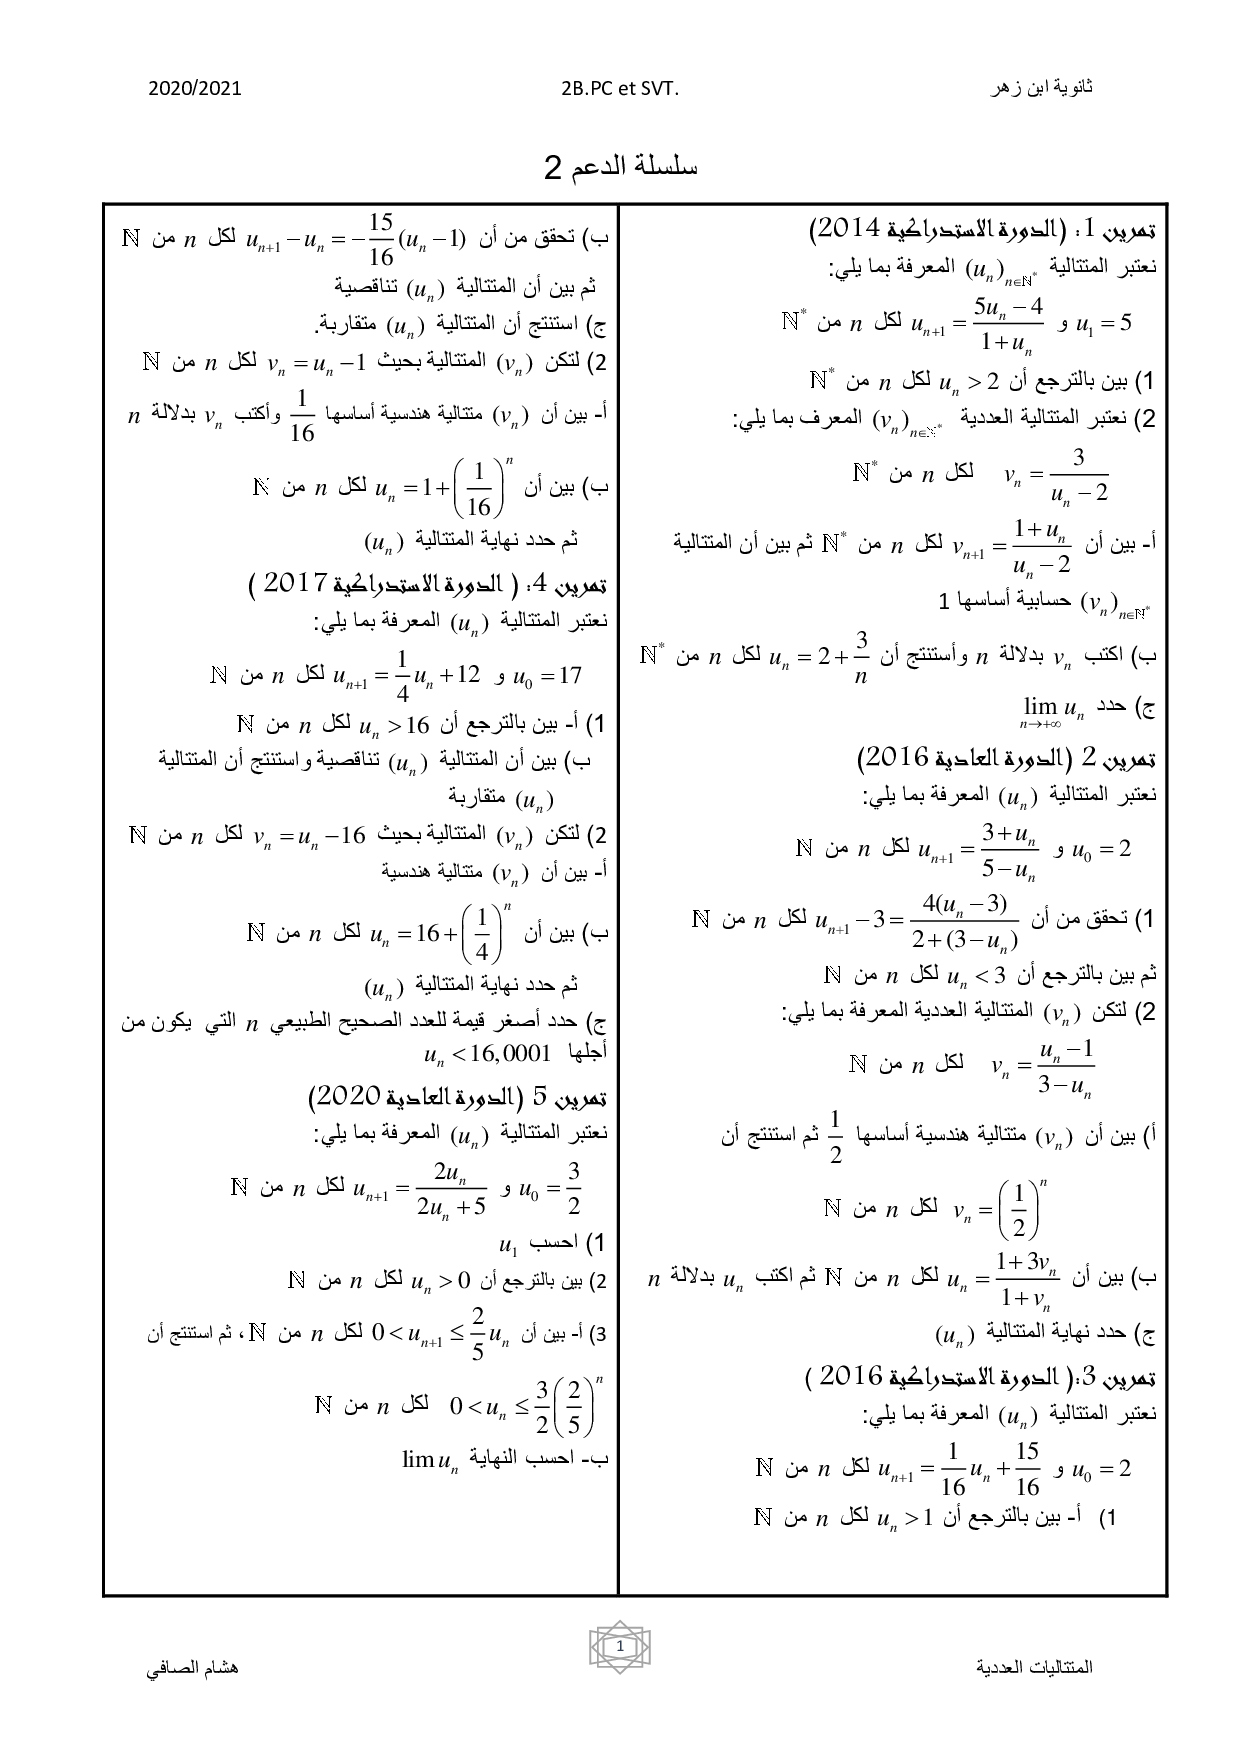 ثانوية ابن زهر 2B.PC et SVT. 2020/2021
سلسلة الدعم 2
تمرين 1: (الدورة الاستدراكية 2014)
نعتبر المتتالية (u_n)_{n∈ℕ*} المعرفة بما يلي:
u_1 = 5 و u_{n+1} = (5u_n − 4)/(1 + u_n) لكل n من ℕ*
1) بين بالترجع أن u_n > 2 لكل n من ℕ*
2) نعتبر المتتالية العددية (v_n)_{n∈ℕ*} المعرف بما يلي:
v_n = 3/(u_n − 2) لكل n من ℕ*
أ- بين أن v_{n+1} = (1 + u_n)/(u_n − 2) لكل n من ℕ* ثم بين أن المتتالية
(v_n)_{n∈ℕ*} حسابية أساسها 1
ب) اكتب v_n بدلالة n وأستنتج أن u_n = 2 + 3/n لكل n من ℕ*
ج) حدد lim_{n→+∞} u_n
تمرين 2 (الدورة العادية 2016)
نعتبر المتتالية (u_n) المعرفة بما يلي:
u_0 = 2 و u_{n+1} = (3 + u_n)/(5 − u_n) لكل n من ℕ
1) تحقق من أن u_{n+1} − 3 = 4(u_n − 3)/(2 + (3 − u_n)) لكل n من ℕ
ثم بين بالترجع أن u_n < 3 لكل n من ℕ
2) لتكن (v_n) المتتالية العددية المعرفة بما يلي:
v_n = (u_n − 1)/(3 − u_n) لكل n من ℕ
أ) بين أن (v_n) متتالية هندسية أساسها 1/2 ثم استنتج أن
v_n = (1/2)^n لكل n من ℕ
ب) بين أن u_n = (1 + 3v_n)/(1 + v_n) لكل n من ℕ ثم اكتب u_n بدلالة n
ج) حدد نهاية المتتالية (u_n)
تمرين 3:( الدورة الاستدراكية 2016 )
نعتبر المتتالية (u_n) المعرفة بما يلي:
u_0 = 2 و u_{n+1} = 1/16 u_n + 15/16 لكل n من ℕ
1) أ- بين بالترجع أن u_n > 1 لكل n من ℕ
ب) تحقق من أن u_{n+1} − u_n = −15/16 (u_n − 1) لكل n من ℕ
ثم بين أن المتتالية (u_n) تناقصية
ج) استنتج أن المتتالية (u_n) متقاربة.
2) لتكن (v_n) المتتالية بحيث v_n = u_n − 1 لكل n من ℕ
أ- بين أن (v_n) متتالية هندسية أساسها 1/16 وأكتب v_n بدلالة n
ب) بين أن u_n = 1 + (1/16)^n لكل n من ℕ
ثم حدد نهاية المتتالية (u_n)
تمرين 4: ( الدورة الاستدراكية 2017 )
نعتبر المتتالية (u_n) المعرفة بما يلي:
u_0 = 17 و u_{n+1} = 1/4 u_n + 12 لكل n من ℕ
1) أ- بين بالترجع أن u_n > 16 لكل n من ℕ
ب) بين أن المتتالية (u_n) تناقصية واستنتج أن المتتالية
(u_n) متقاربة
2) لتكن (v_n) المتتالية بحيث v_n = u_n − 16 لكل n من ℕ
أ- بين أن (v_n) متتالية هندسية
ب) بين أن u_n = 16 + (1/4)^n لكل n من ℕ
ثم حدد نهاية المتتالية (u_n)
ج) حدد أصغر قيمة للعدد الصحيح الطبيعي n التي يكون من
أجلها u_n < 16,0001
تمرين 5 (الدورة العادية 2020)
نعتبر المتتالية (u_n) المعرفة بما يلي:
u_0 = 3/2 و u_{n+1} = 2u_n/(2u_n + 5) لكل n من ℕ
1) احسب u_1
2) بين بالترجع أن u_n > 0 لكل n من ℕ
3) أ- بين أن 0 < u_{n+1} ≤ 2/5 u_n لكل n من ℕ، ثم استنتج أن
0 < u_n ≤ 3/2 (2/5)^n لكل n من ℕ
ب- احسب النهاية lim u_n
1
المتتاليات العددية هشام الصافي